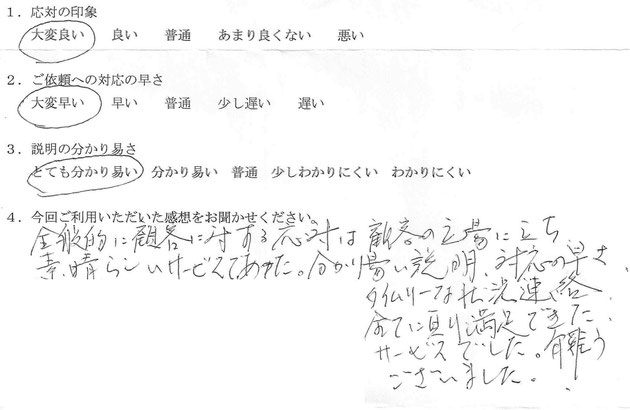 1．応対の印象
大変良い　良い　普通　あまり良くない　悪い
2．ご依頼への対応の早さ
大変早い　早い　普通　少し遅い　遅い
3．説明の分かり易さ
とても分かり易い　分かり易い　普通　少しわかりにくい　わかりにくい
4．今回ご利用いただいた感想をお聞かせください
全般的に顧客に対する応対は顧客の立場に立ち
素晴らしいサービスであった。分かり易い説明、対応の早さ、
タイムリーな状況連絡、
全てに真り満足できた
サービスでした。有難う
ございました。!